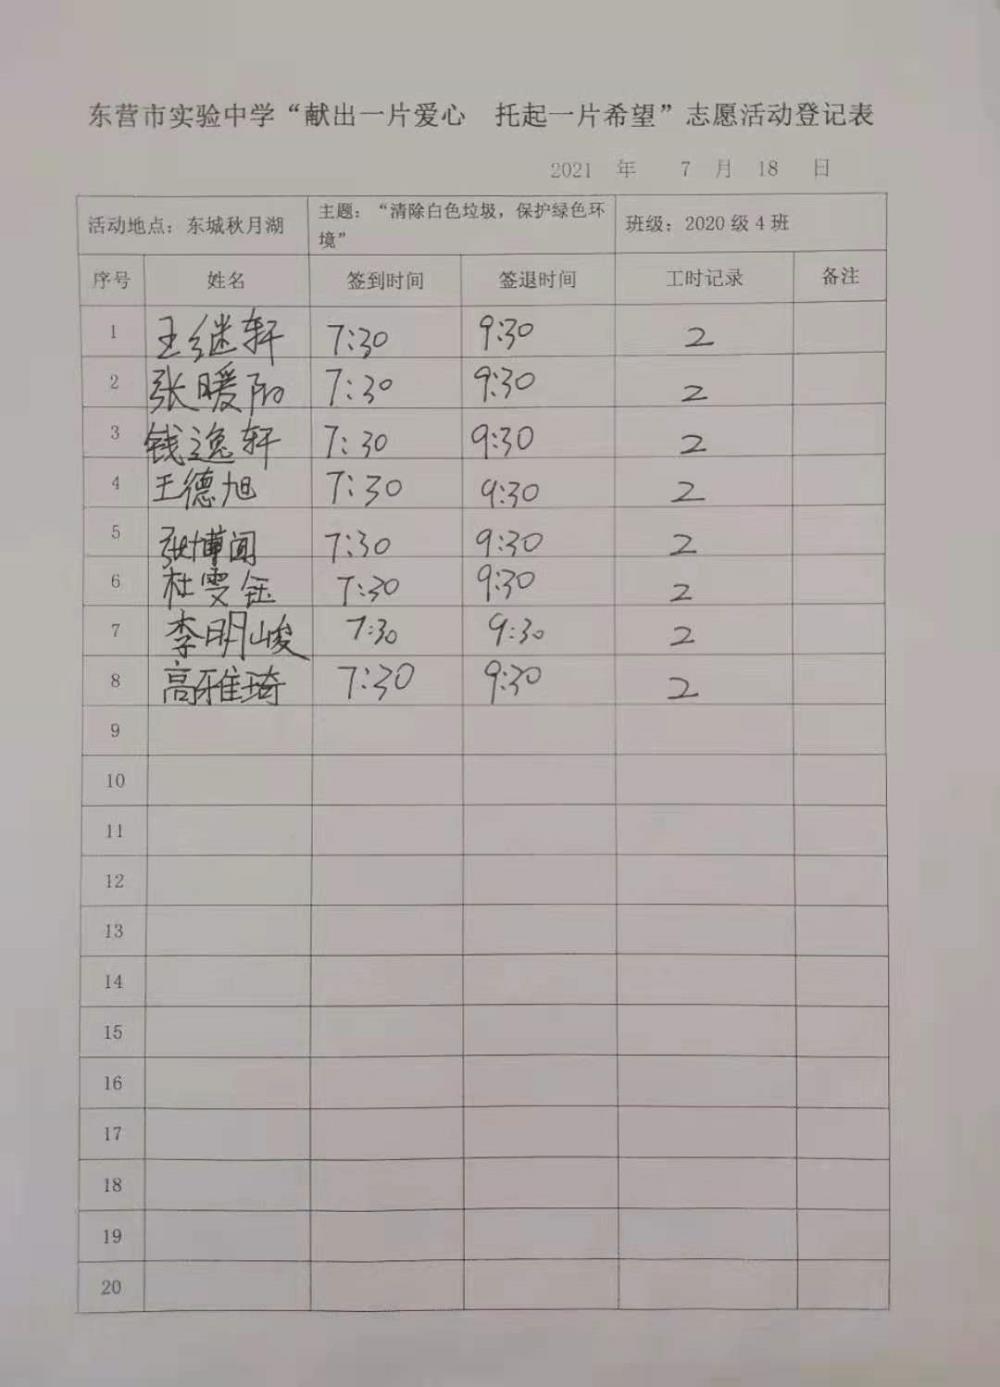 东营市实验中学“献出一片爱心 托起一片希望”志愿活动登记表
2021 年 7 月 18 日
活动地点：东城秋月湖 主题：“清除白色垃圾，保护绿色环境” 班级：2020 级 4 班
序号 姓名 签到时间 签退时间 工时记录 备注
1 王继轩 7:30 9:30 2
2 张暖阳 7:30 9:30 2
3 钱逸轩 7:30 9:30 2
4 王德旭 7:30 9:30 2
5 张博闻 7:30 9:30 2
6 杜雯钰 7:30 9:30 2
7 李明峻 7:30 9:30 2
8 高雅琦 7:30 9:30 2
9
10
11
12
13
14
15
16
17
18
19
20